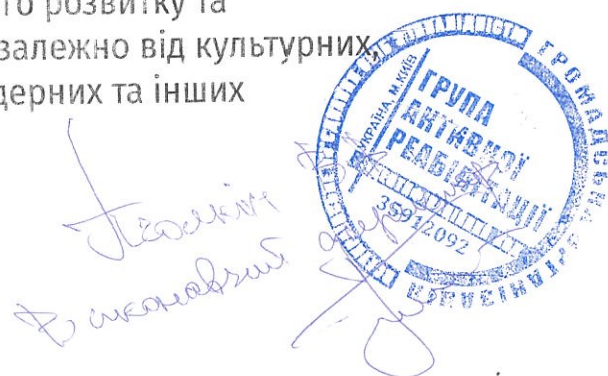 го розвитку та
залежно від культурних,
дерних та інших
ГРОМАДСЬКА ОРГАНІЗАЦІЯ
УКРАЇНА, М.КИЇВ
ГРУПА
АКТИВНОЇ
РЕАБІЛІТАЦІЇ
35912092
Виконавчий